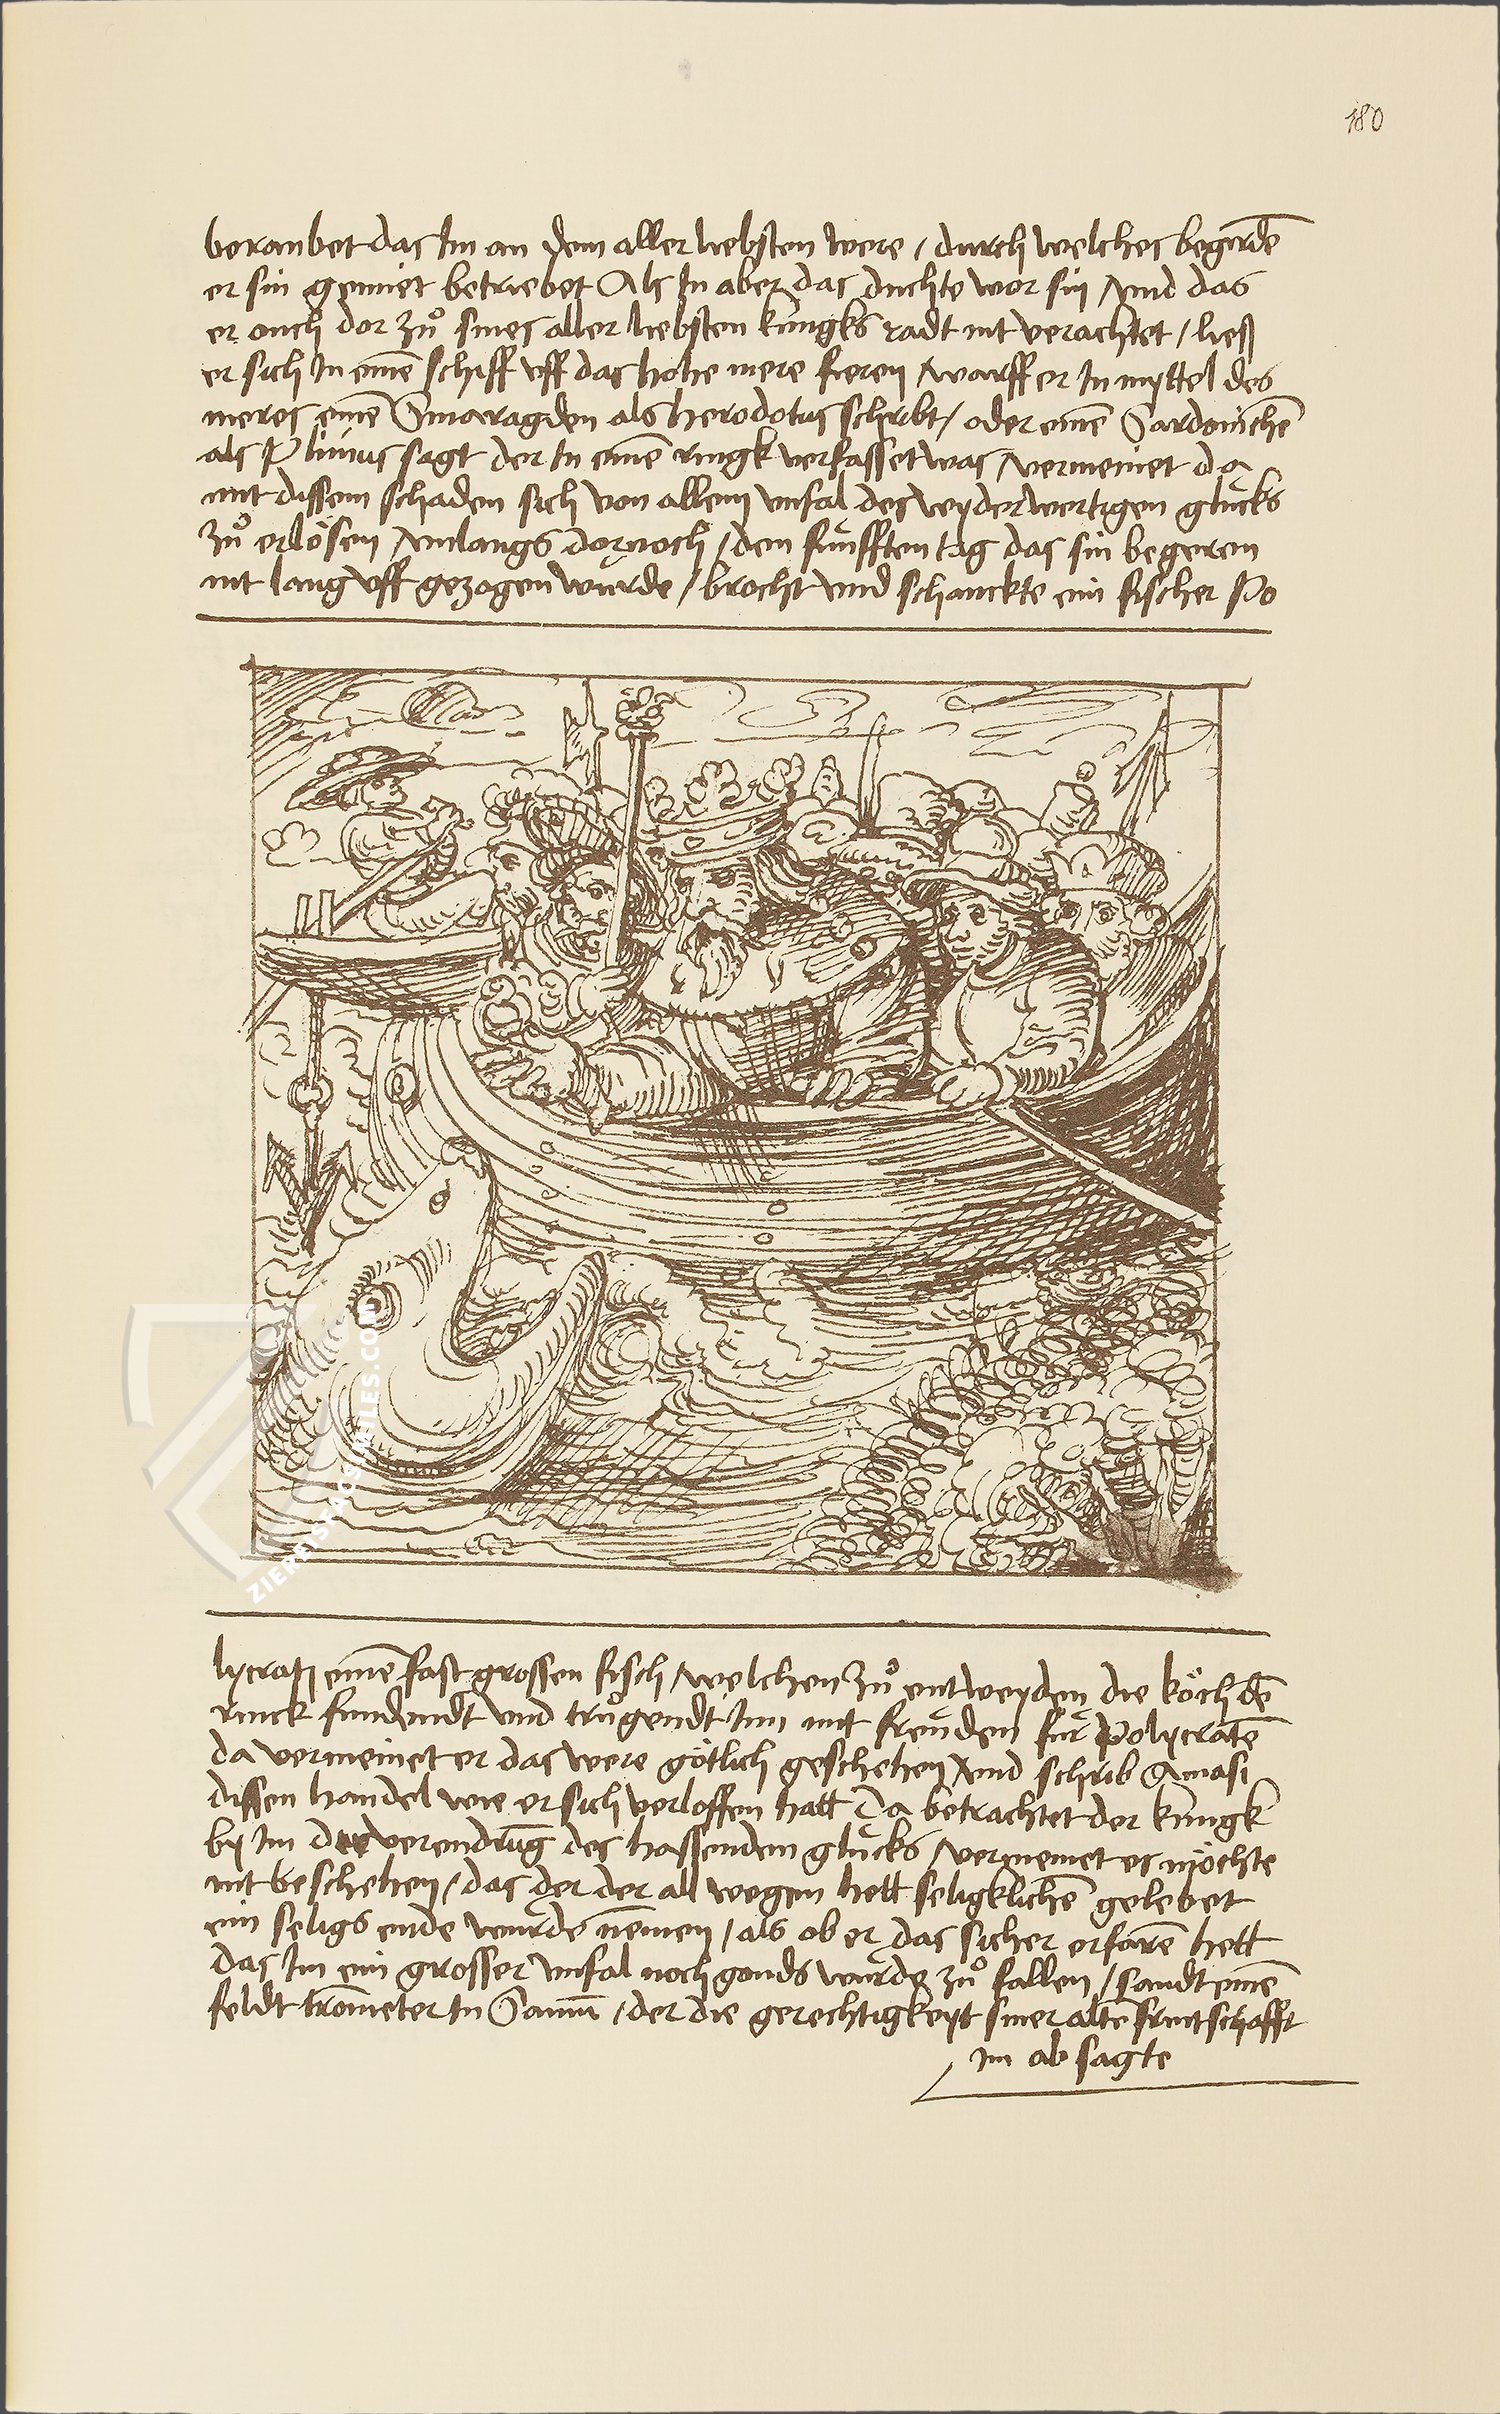 180
beraubet das Im an dem aller liebsten were / durch welches begirde
er sin gemiet betriebet Als In aber das duchte wor sin / vnd das
er ouch dor zů sines aller liebsten kungks radt nit verachtet / ließ
er sich In eine̅ schiff vff das hohe mere fieren / warff er In myttel des
meres eine̅ Smaragden als herodotus schribt / oder eine̅ Sardoniche̅
als Plinius sagt der In eine̅ ringk verfasset was / vermeinet da
mit dissem schaden sich von allem vnfal des wyderwertigen glucks
zů erlösen / vnlangs dornoch / den funfften tag das sin begeren
nit lang vff gezogen wurde / brocht vnd schanckte ein fischer Po
lycrati eine̅ fast grossen fisch / welchen zů entweyden die köch de̅
rinck fundendt vnd trůgendt Inn mit freuden fur Polycrate̅
da vermeinet er das were götlich geschehen / vnd schrib Amasi
dissen handel wie er sich verloffen hatt Da betrachtet der kungk
by Im der verendru̅g des hassenden glucks / vermeinet es möchte
nit beschehen / das der der all wegen hett seligkliche̅ gelebet
ein seligs ende wurde ne̅men / als ob er das sicher erfare̅ hett
das Im ein grosser vnfal noch gonds wurde zů fallen / sandt eine̅
feldt tro̅meter In Samu̅ / der die gerechtigkeyt siner alte̅ fruntschafft
im ab sagte
ZIEREIS FACSIMILES.COM